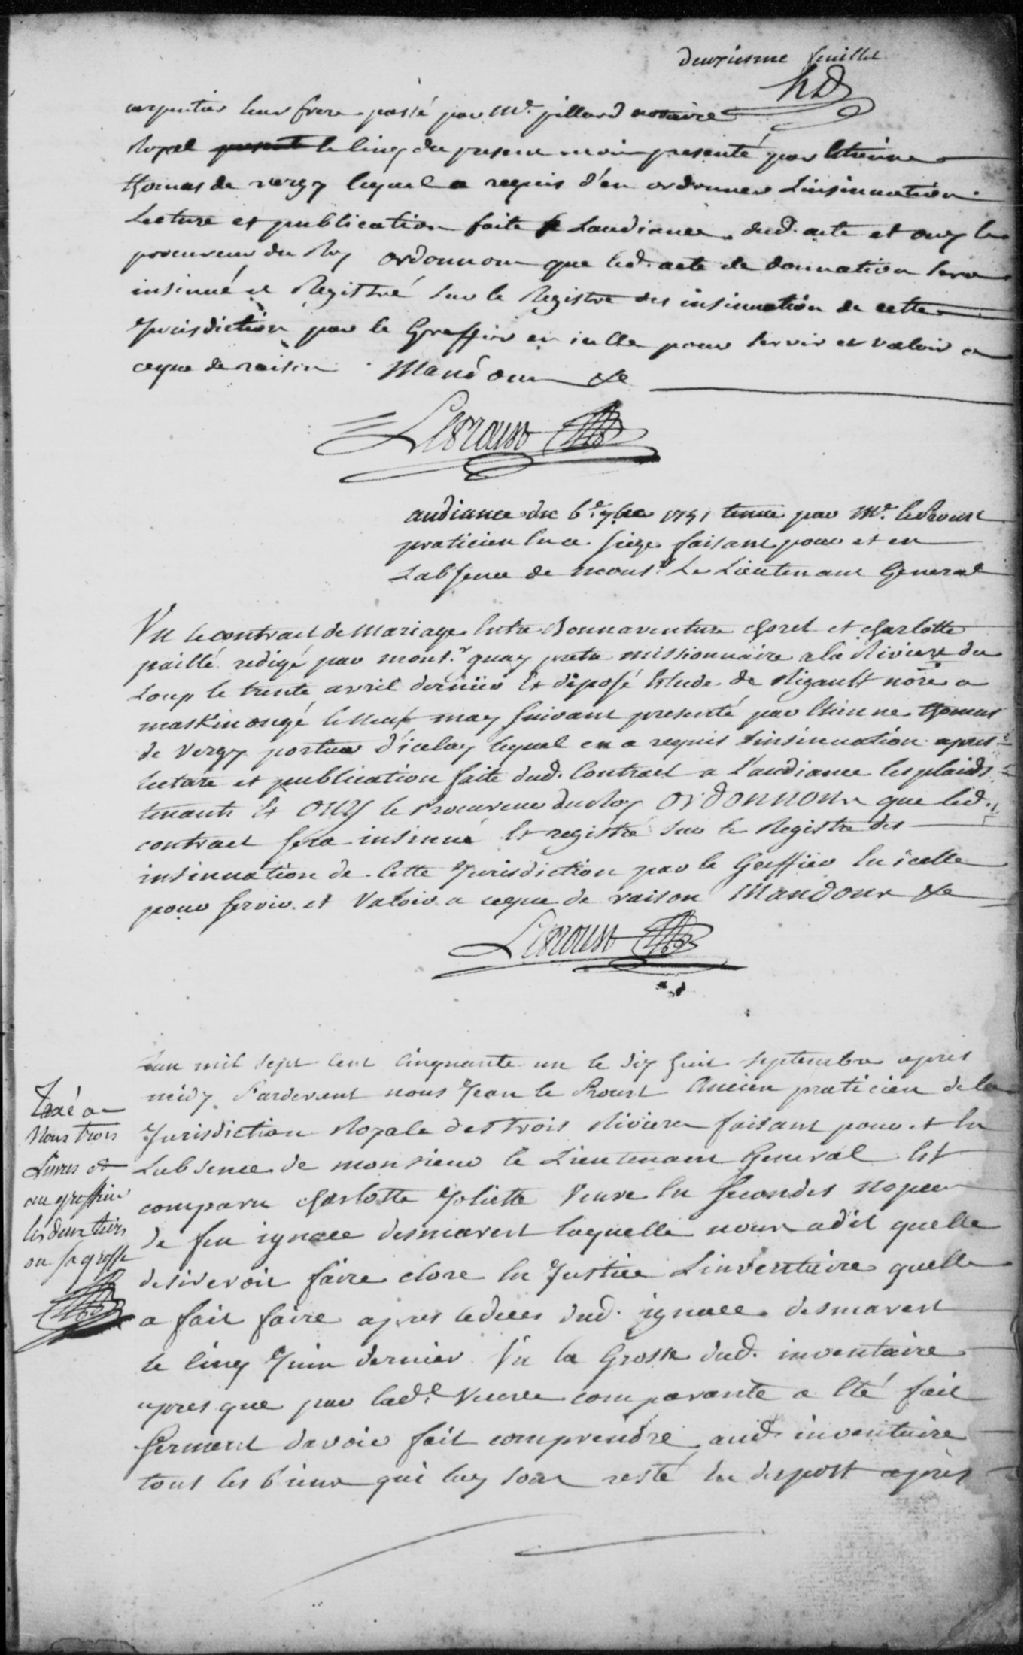 deuxieme feuillet
hD
carpentier leur frere passé par Mr. pillard notaire
Royal le cinq du present mois presenté par Etienne
thomas de vergy lequel a requis d'en ordonner Linsinuation
Lecture et publication faite Laudiance dud. acte et ouy le
procureur du Roy ordonnons que led. acte de donnation sera
insinué et Registré sur le Registre des insinuation de cette
Jurisdiction par le Greffier en icelle pour servir et valoir a
ceque de raison Mandons &c
Leproust
audiance du 6e. 7bre 1751 tenue par Mr. leProust
praticien en ce siege faisant pour et en
Labsence de mons.r Le Lieutenant General
Vu le contract de Mariage Entre Bonnaventure choret et charlotte
paillé redigé par mons.r quay pretre missionnaire a la Riviere du
Loup le trente avril dernier Et deposé Etude de Rigault nore a
maskinongé le neuf may suivant presenté par Etienne thomas
de vergy porteur d'iceluy lequel en a requis Linsinuation apres
lecture et publication faite dud. Contract a l'audiance les plaids
tenants Et OUY le Procureur du Roy ORDONNONS que led.
contract sera insinué Et registré sur le Registre des
insinuation de Cette Jurisdiction par le Greffier En icelle
pour servir et Valoir a ceque de raison MANDONS &c
Leproust
Lan mil sept cent Cinquante un le dix huit septembre apres
midy Pardevant nous Jean le Proust Ancien praticien de la
Jurisdiction Royale des trois Riviere faisant pour et En
Labsence de monsieur le Lieutenant General Est
comparu charlotte Joliette Veuve En secondes nopces
de feu ignace desmarest laquelle nous a dit quelle
desireroit faire clore En Justice Linventaire quelle
a fait faire apres le deces dud. ignace desmarest
le cinq Juin dernier Vu la Grosse dud. inventaire
apres que par lad.e Veuve comparante a Eté fait
serment davoir fait comprendre aud. inventaire
tous les biens qui luy sont resté En depost apres
Taxé a
Nous trois
Livres et
au greffier
les deux tiers
ou sa grosse